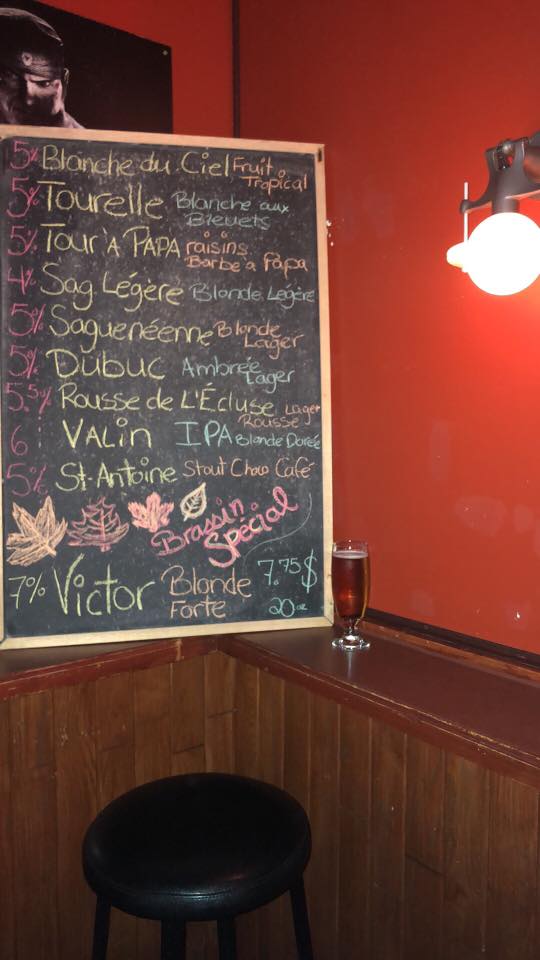 5% Blanche du Ciel Fruit Tropical
5% Tourelle Blanche aux Bleuets
5% Tour à PAPA raisins Barbe à Papa
4% Sag. Légère Blonde Legère
5% Saguenéenne Blonde Lager
5% Dubuc Ambrée Lager
5.5% Rousse de L'Écluse Lager Rousse
6 VALIN IPA Blonde Dorée
5% St-Antoine Stout Choco Café
Brassin Spécial
7% Victor Blonde Forte 7.75$ 20oz